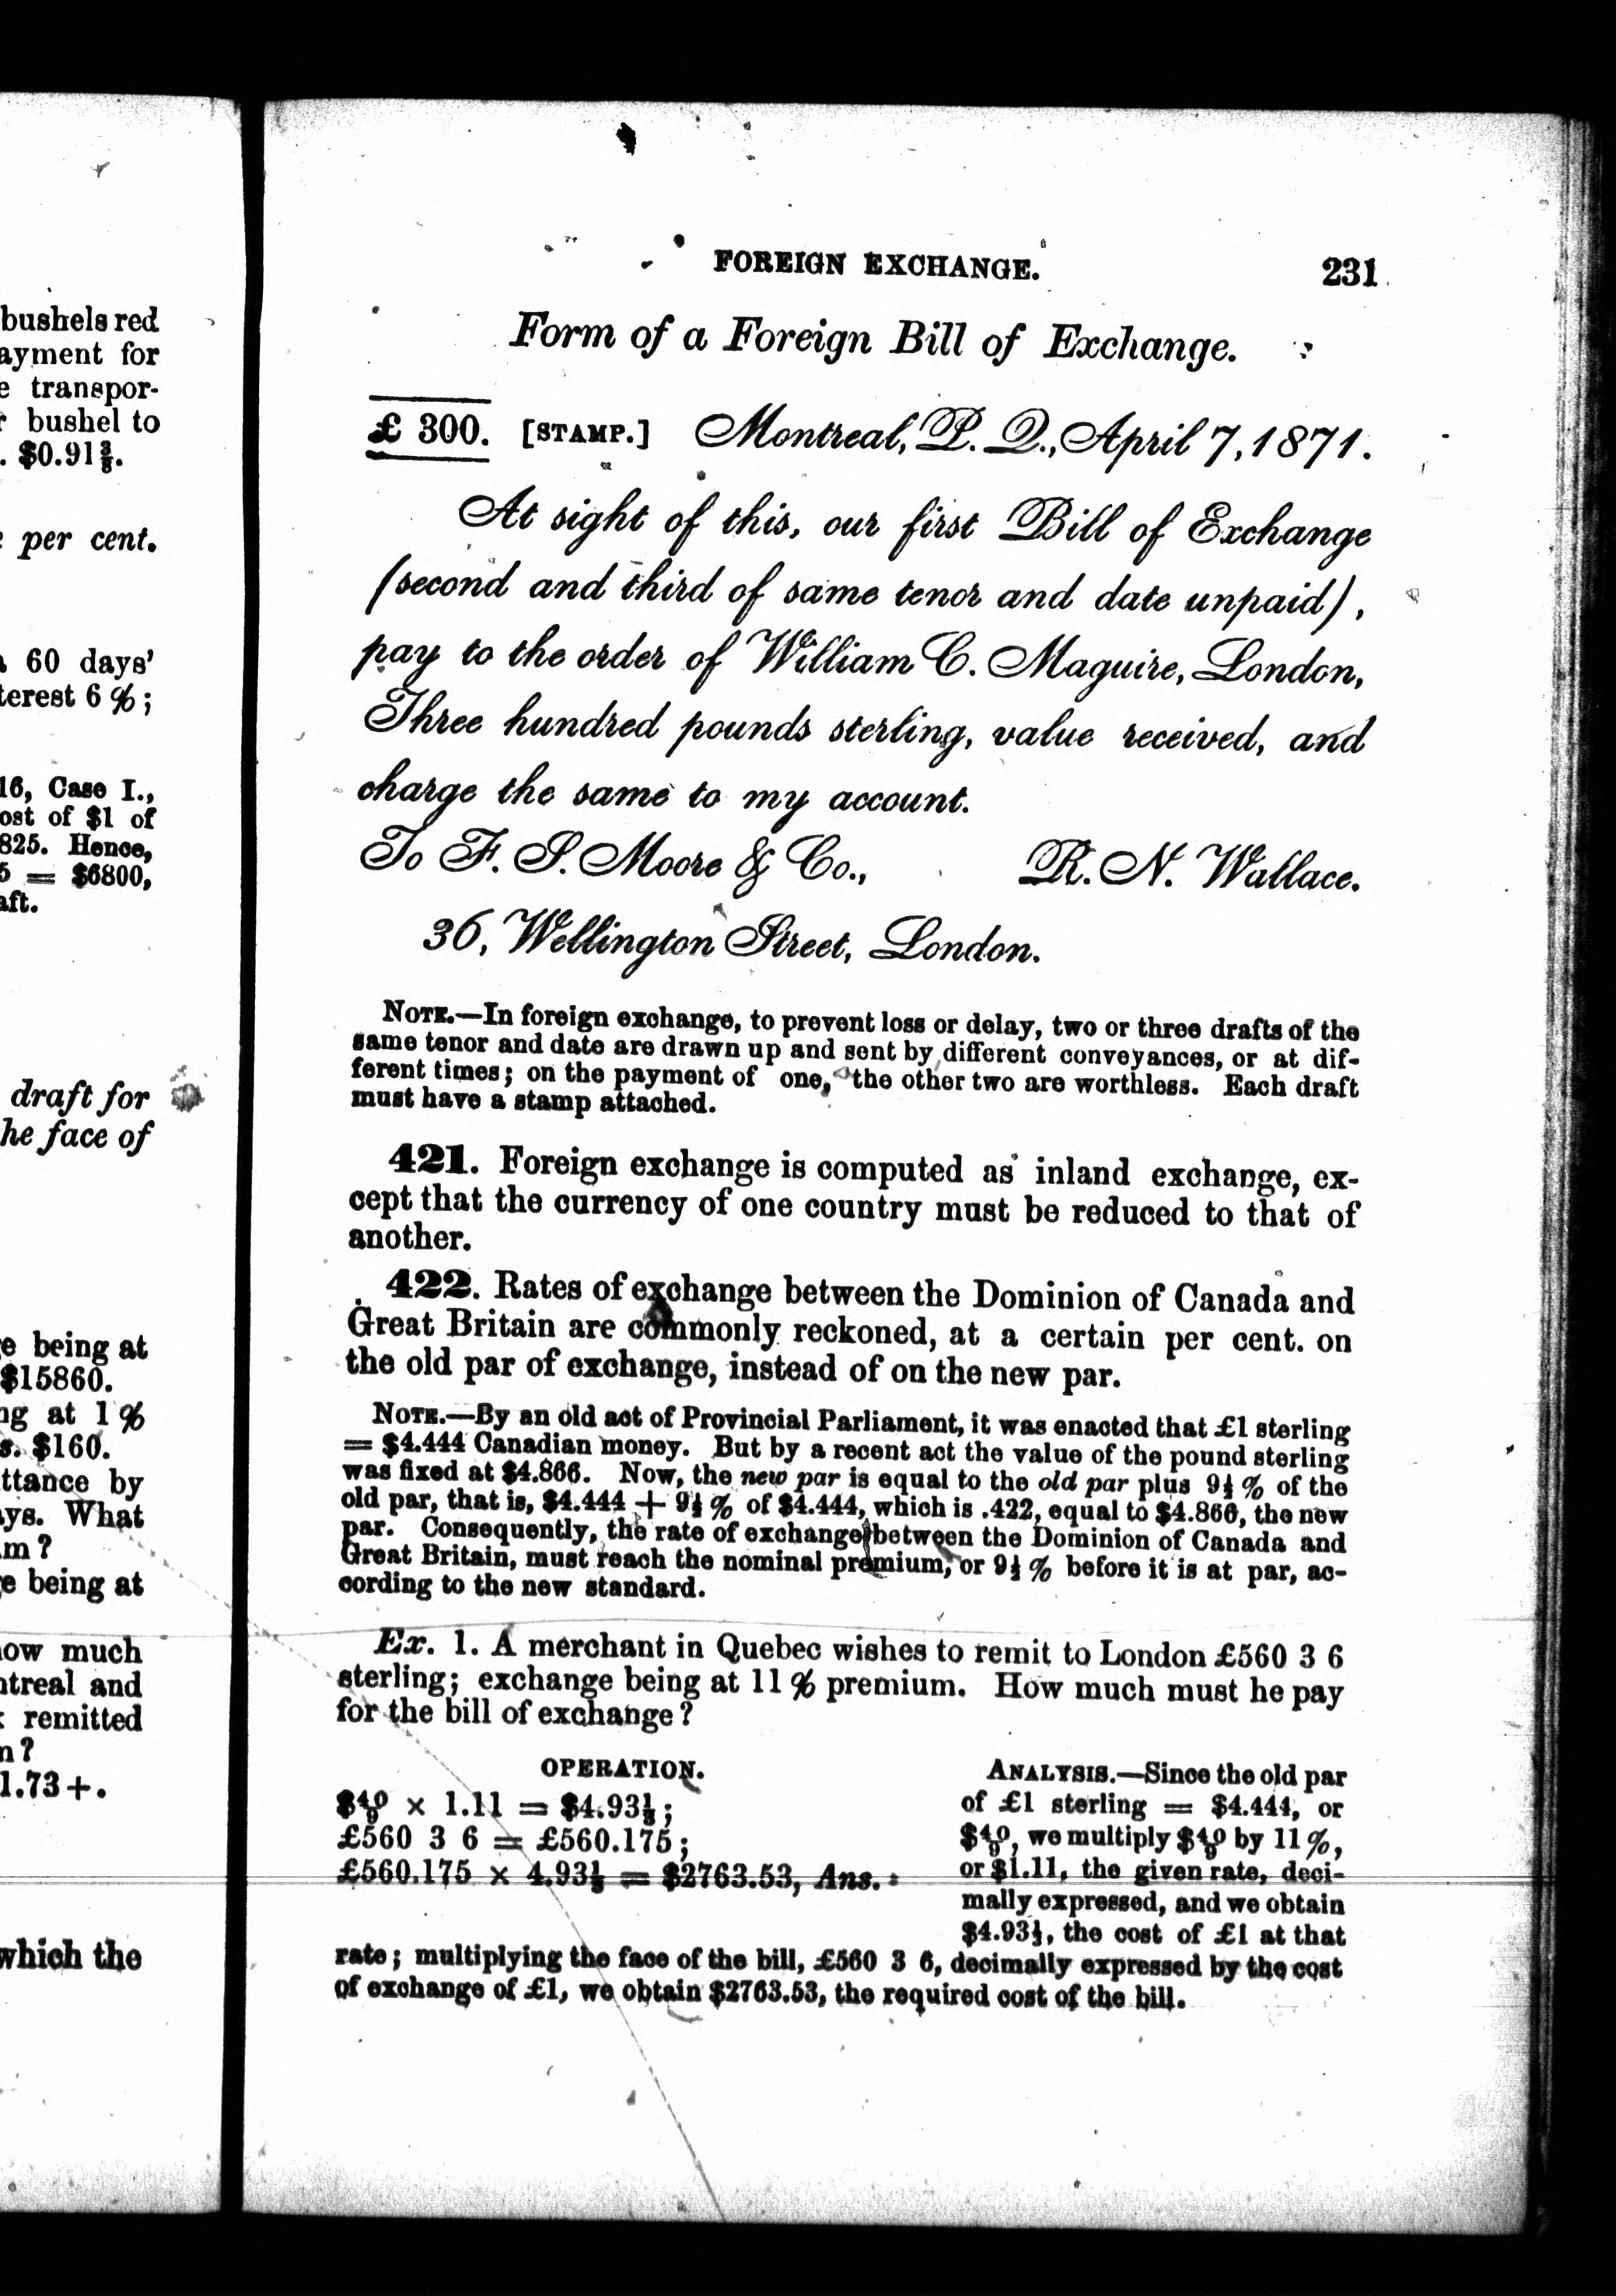 bushels red
ayment for
e transpor-
r bushel to
. $0.91⅜.
per cent.
60 days'
terest 6 %;
16, Case I.,
ost of $1 of
825. Hence,
5 = $6800,
aft.
draft for
he face of
e being at
$15860.
ng at 1 %
s. $160.
ttance by
ys. What
m ?
e being at
ow much
ntreal and
remitted
n ?
1.73+.
which the
FOREIGN EXCHANGE. 231
Form of a Foreign Bill of Exchange.
£ 300. [STAMP.] Montreal, P. Q., April 7, 1871.
At sight of this, our first Bill of Exchange
(second and third of same tenor and date unpaid),
pay to the order of William C. Maguire, London,
Three hundred pounds sterling, value received, and
charge the same to my account.
To F. S. Moore & Co., R. N. Wallace.
36, Wellington Street, London.
NOTE.—In foreign exchange, to prevent loss or delay, two or three drafts of the
same tenor and date are drawn up and sent by different conveyances, or at dif-
ferent times; on the payment of one, the other two are worthless. Each draft
must have a stamp attached.
421. Foreign exchange is computed as inland exchange, ex-
cept that the currency of one country must be reduced to that of
another.
422. Rates of exchange between the Dominion of Canada and
Great Britain are commonly reckoned, at a certain per cent. on
the old par of exchange, instead of on the new par.
NOTE.—By an old act of Provincial Parliament, it was enacted that £1 sterling
= $4.444 Canadian money. But by a recent act the value of the pound sterling
was fixed at $4.866. Now, the new par is equal to the old par plus 9½ % of the
old par, that is, $4.444 + 9½ % of $4.444, which is .422, equal to $4.866, the new
par. Consequently, the rate of exchange between the Dominion of Canada and
Great Britain, must reach the nominal premium, or 9½ % before it is at par, ac-
cording to the new standard.
Ex. 1. A merchant in Quebec wishes to remit to London £560 3 6
sterling; exchange being at 11 % premium. How much must he pay
for the bill of exchange ?
OPERATION.
$40/9 × 1.11 = $4.93⅓;
£560 3 6 = £560.175;
£560.175 × 4.93⅓ = $2763.53, Ans.
ANALYSIS.—Since the old par
of £1 sterling = $4.444, or
$40/9, we multiply $40/9 by 11 %,
or $1.11, the given rate, deci-
mally expressed, and we obtain
$4.93⅓, the cost of £1 at that
rate; multiplying the face of the bill, £560 3 6, decimally expressed by the cost
of exchange of £1, we obtain $2763.53, the required cost of the bill.